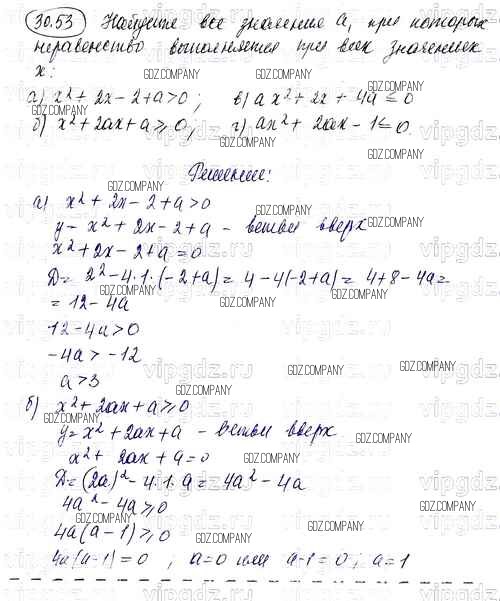 30.53 Найдите все значения а, при которых
неравенство выполняется при всех значениях
х:
а) x² + 2x - 2 + a > 0; в) ax² + 2x + 4a ≤ 0
б) x² + 2ax + a ≥ 0; г) ax² + 2ax - 1 ≤ 0.
Решение:
а) x² + 2x - 2 + a > 0
y = x² + 2x - 2 + a - ветви вверх
x² + 2x - 2 + a = 0
D = 2² - 4·1·(-2 + a) = 4 - 4(-2 + a) = 4 + 8 - 4a =
= 12 - 4a
12 - 4a > 0
-4a > -12
a > 3
б) x² + 2ax + a ≥ 0
y = x² + 2ax + a - ветви вверх
x² + 2ax + a = 0
D = (2a)² - 4·1·a = 4a² - 4a
4a² - 4a ≥ 0
4a(a - 1) ≥ 0
4a(a - 1) = 0; a = 0 или a - 1 = 0; a = 1
GDZ.COMPANY
vipgdz.ru